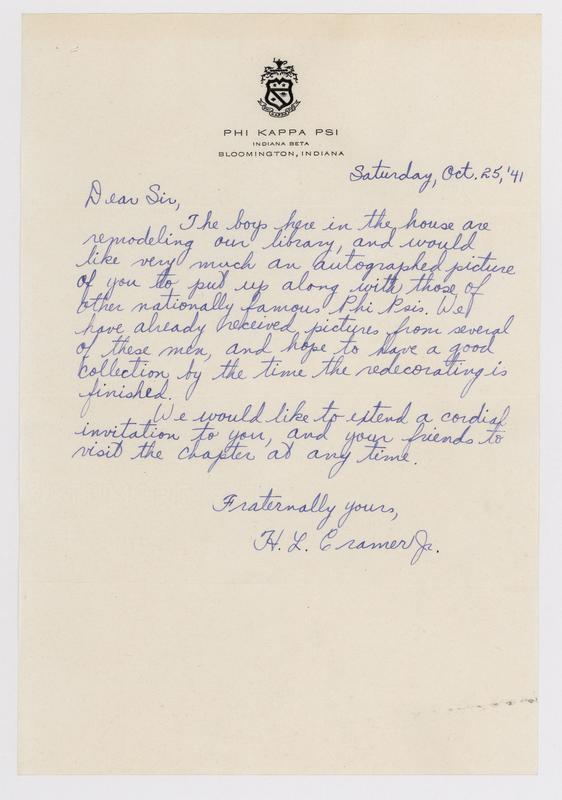 PHI KAPPA PSI
INDIANA BETA
BLOOMINGTON, INDIANA
Saturday, Oct. 25, '41
Dear Sir,
The boys here in the house are
remodeling our library, and would
like very much an autographed picture
of you to put up along with those of
other nationally famous Phi Psis. We
have already received pictures from several
of these men, and hope to have a good
collection by the time the redecorating is
finished.
We would like to extend a cordial
invitation to you, and your friends to
visit the chapter at any time.
Fraternally yours,
H. L. Cramer Jr.